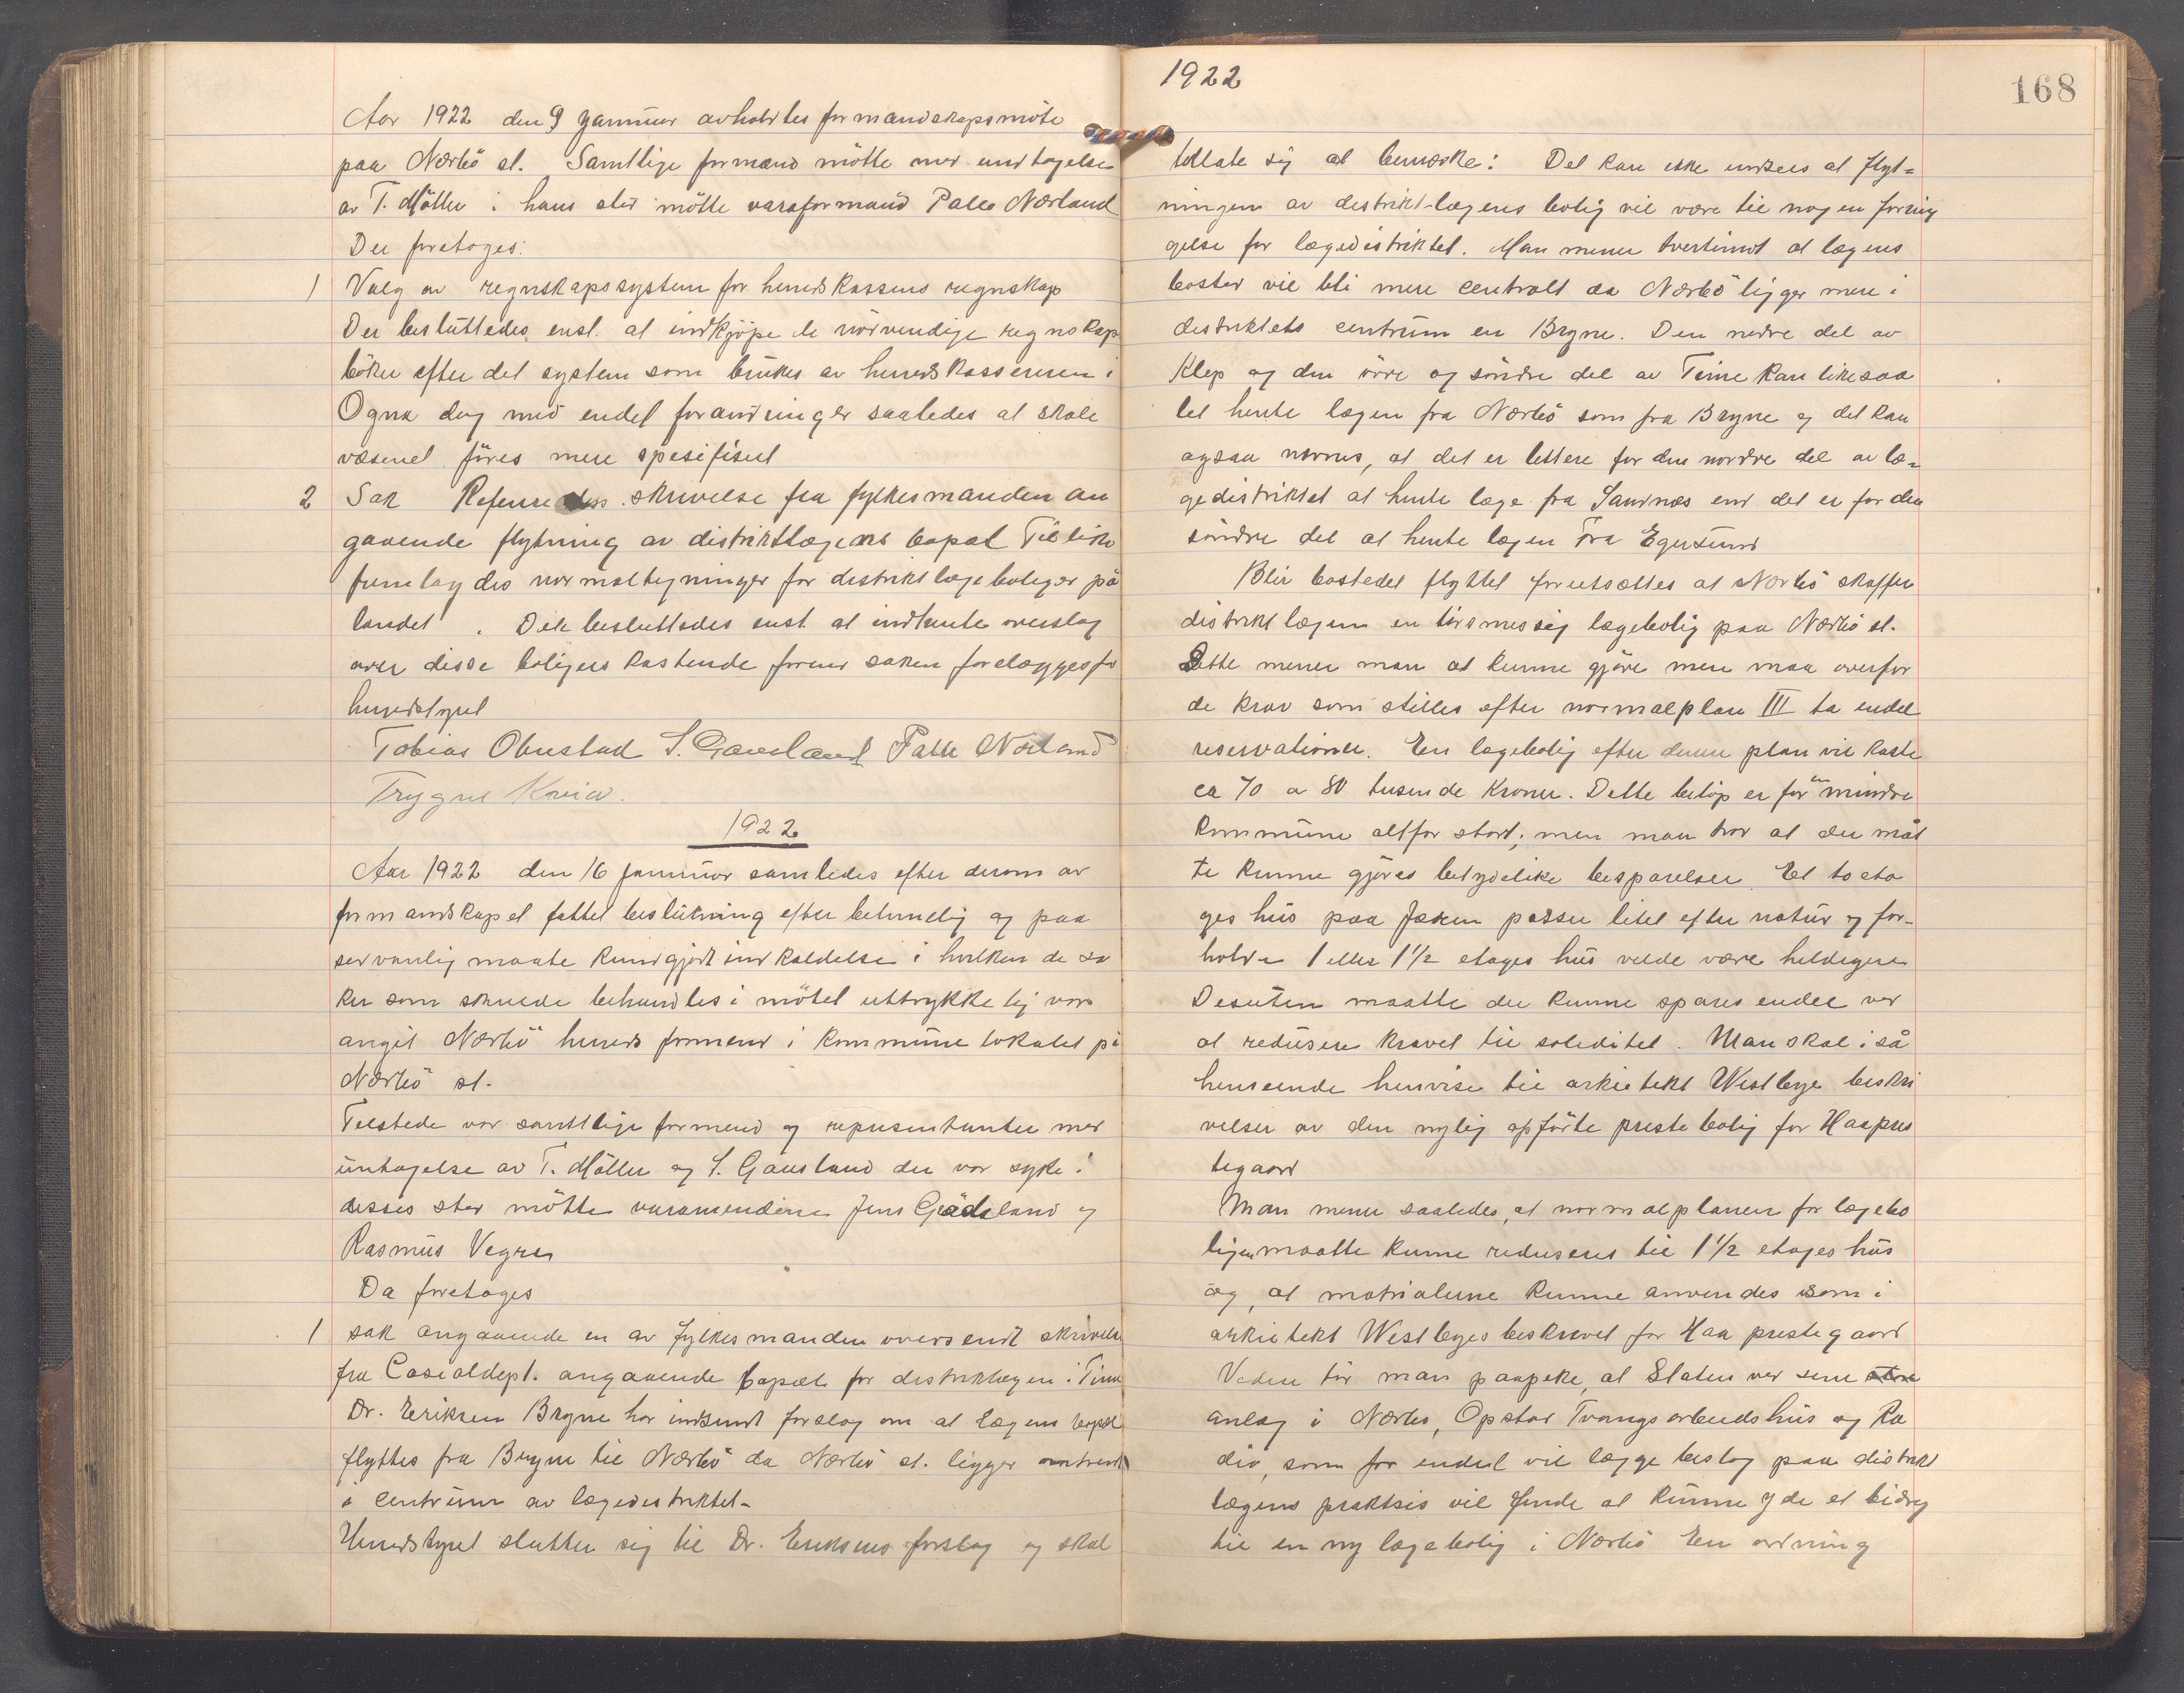 Aar 1922 den 9 Januar avholdtes formandskapsmöte
paa Nærbö st. Samtlige formænd mötte med undtagelse
av T. Möller i hans sted mötte varaformand Palle Nærland
Der foretoges:
1 Valg av regnskapssystem for herredskassens regnskap
Der besluttedes enst. at indkjöpe de nödvendige regnskap
böker efter det system som brukes av herredskassereren i
Ogna dog med endel forandringer saaledes at skole
væsenet föres mere spesifisert
2 Sak Refereredes skrivelse fra fylkesmanden an
gaaende flytning av distriktlægens bopæl Tillike
fremlagdes normaltegninger for distriktlægeboliger på
landet. Det besluttedes enst. at indhente overslag
over disse boligers kostende forend saken forelægges for
herredstyret
Tobias Obrestad S. Gausland Palle Nærland
Trygve Kvia.
1922
Aar 1922 den 16 januar samledes efter derom av
formandskapet fattet beslutning efter betimelig og paa
sedvanlig maate kundgjort indkaldelse i hvilken de sa
ker som skulde behandles i mötet uttrykkelig var
angit Nærbö herreds formend i kommunelokalet på
Nærbö st.
Tilstede var samtlige formend og representanter med
untagelse av T. Möller og S. Gausland der var syke. I
disses sted mötte varamendene Jens Grödeland og
Rasmus Vegre
Da foretoges
1 sak angaaende en av fylkesmanden oversendt skrivelse
fra Cosialdept. angaaende bopæl for distriktlægen i Time
Dr. Eriksen Bryne har indsendt forslag om at lægens bopæl
flyttes fra Bryne til Nærbö da Nærbö st. ligger omtrendt
i centrum av lægedistriktet.
Herredstyret slutter sig til Dr. Eriksens forslag og skal
1922
168
tillate sig at bemerke: Det kan ikke indsees at flyt=
ningen av distrikt-lægens bolig vil være til nogen forring
gelse for lægedistriktet. Man mener tvertimot at lægens
bosted vil bli mere centralt da Nærbö ligger mere i
distriktets centrum en Bryne. Den nedre del av
Klep og den övre og söndre del av Time kan likesaa
let hente lægen fra Nærbö som fra Bryne og det kan
ogsaa nevnes, at det er lettere for den nordre del av læ=
gedistriktet at hente læge fra Sandnæs end det er for den
söndre del at hente lægen fra Egersund
Blir bostedet flyttet forutsættes at Nærbö skaffer
distriktlægen en tidsmessig lægebolig paa Nærbö st.
Dette mener man at kunne gjöre men maa overfor
de krav som stilles efter normalplan III ta endel
reservationer. En lægebolig efter denne plan vil koste
ca 70 a 80 tusende kroner. Dette belöp er for en mindre
kommune altfor stort; men man tror at der måt
te kunne gjöres betydelike besparelser. Et to eta
ges hus paa Jæren passer litet efter natur og for-
holde 1 eller 1½ etages hus vilde være heldigere
Desuten maatte der kunne spares endel ved
at redusere kravet til soliditet. Man skal i så
henseende henvise til arkitekt Westbye beskri
velser av den nylig opförte prestebolig for Haapres
tegaard
Man mener saaledes, at normalplanen for lægebo
ligen maatte kunne reduseres til 1½ etages hus
og, at matrialerne kunne anvendes som i
arkitekt Westbyes beskrevet for Haa prestegaard
Videre tör man paapeke, at Staten ved sine store
anlæg i Nærbö, Opstad Tvangsarbeidshus og Ra
dio, som for endel vil lægge beslag paa distrikt
lægens praktsis vil finde at kunne yde et bidrag
til en ny lægebolig i Nærbö En ordning